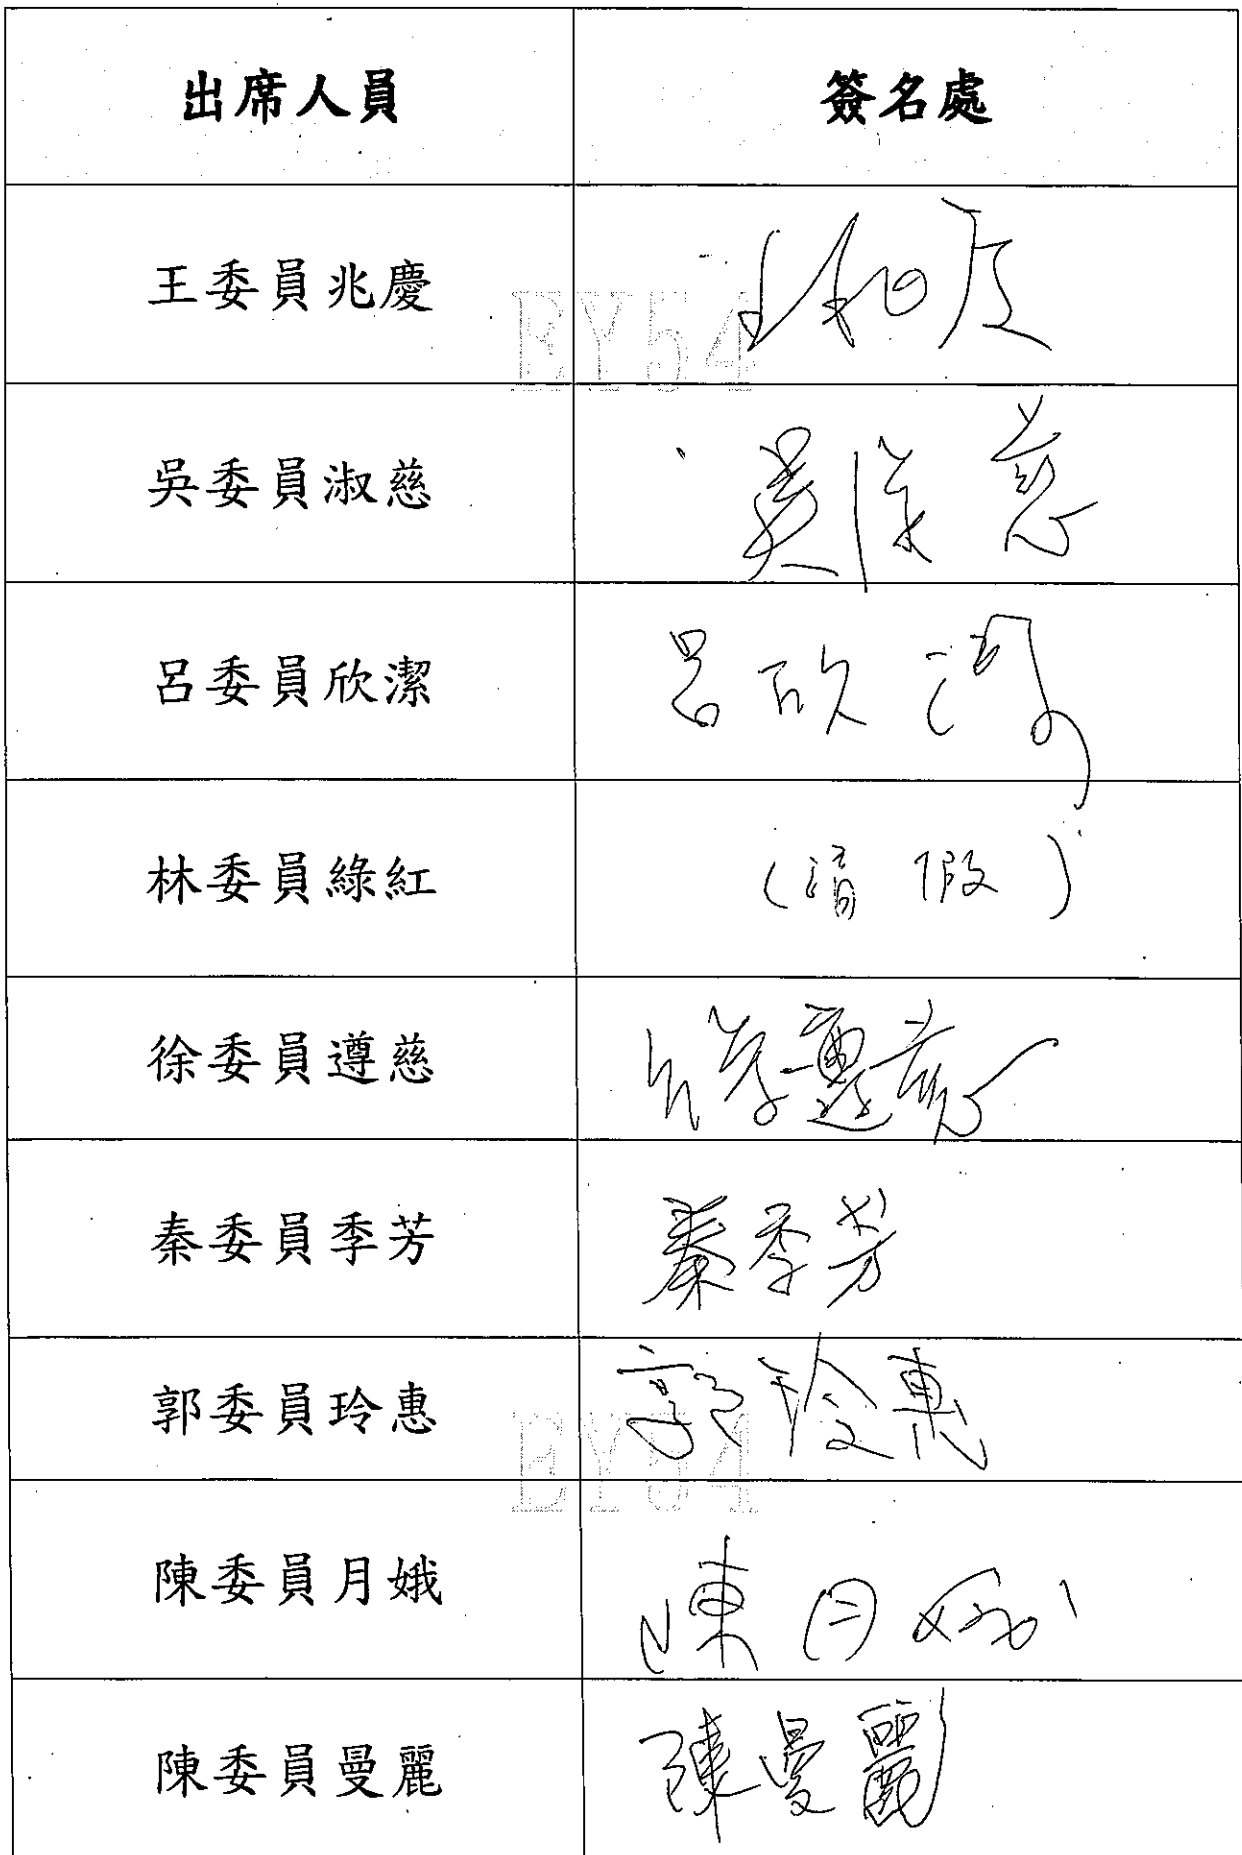 出席人員 簽名處
王委員兆慶
EY54
吳委員淑慈 吳淑慈
呂委員欣潔 呂欣潔
林委員綠紅 (請假)
徐委員遵慈 徐遵慈
秦委員季芳 秦季芳
郭委員玲惠 郭玲惠
EY54
陳委員月娥 陳月娥
陳委員曼麗 陳曼麗